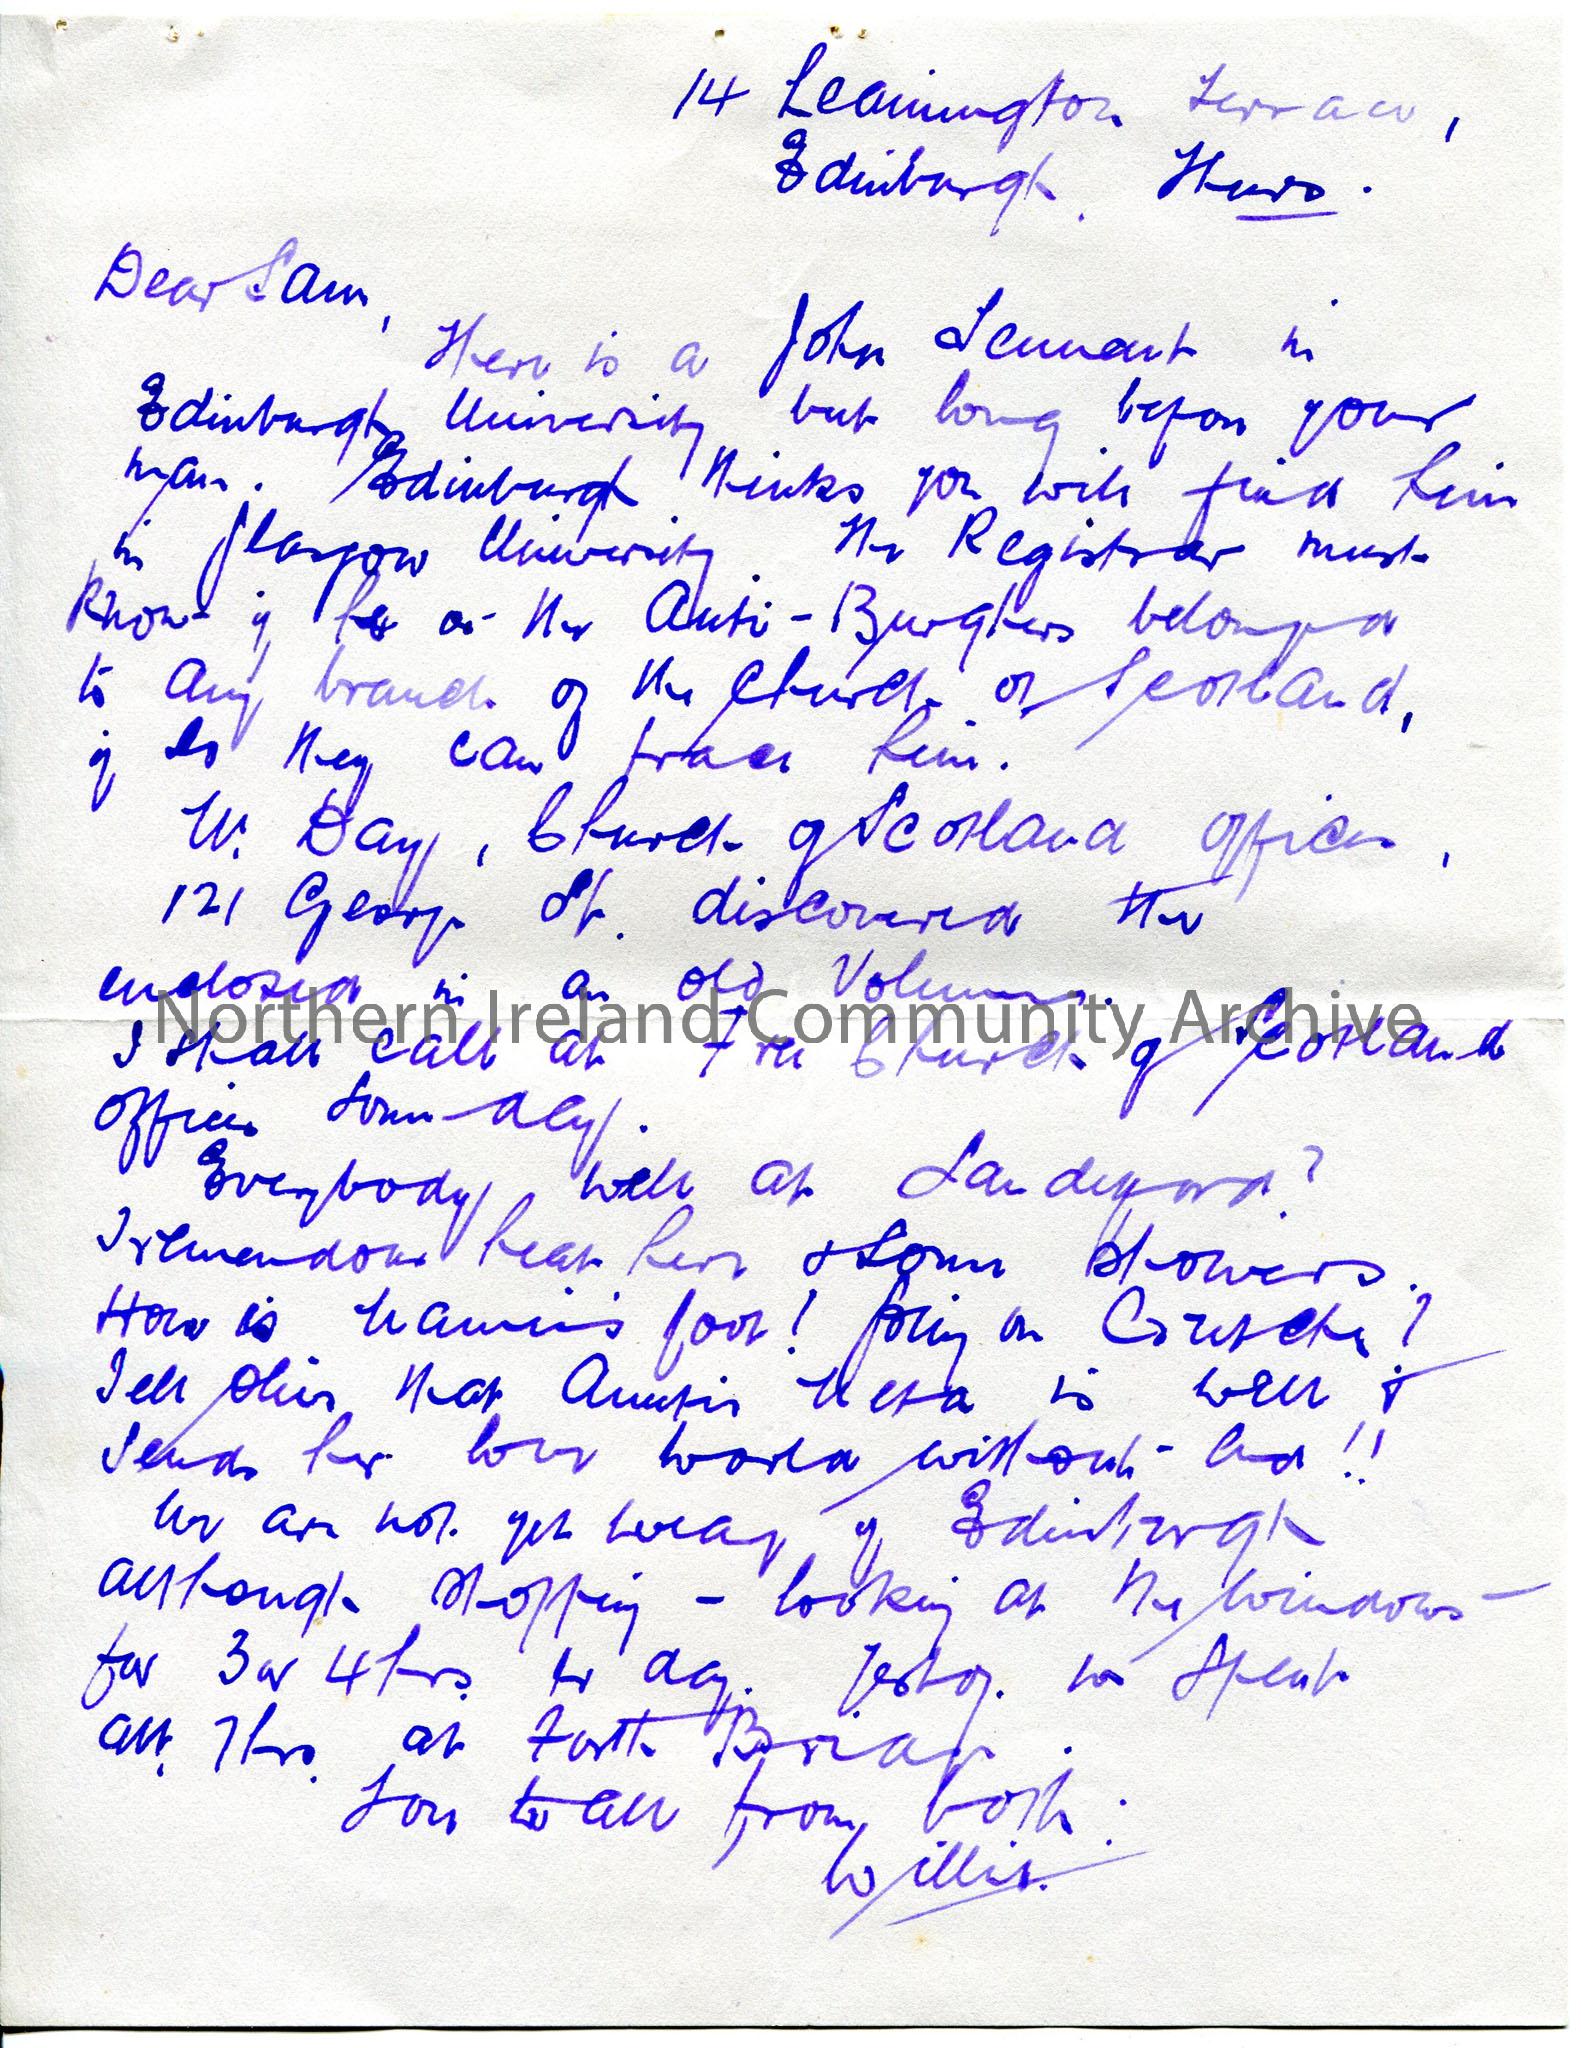 14 Leamington Terrace,
Edinburgh. Thurs.
Dear Sam,
There is a John Tennant in
Edinburgh University but long before your
man. Edinburgh thinks you will find him
in Glasgow University. The Registrar must
know if he or the Anti-Burghers belonged
to any branch of the Church of Scotland,
if so they can trace him.
W. Day, Church of Scotland offices,
121 George St. discovered the
enclosed in an old Volume.
Northern Ireland Community Archive
I shall call at Free Church of Scotland
offices some day.
Everybody well at Landeyard?
Tremendous heat here & some showers.
How is foot! Going on Crutches?
Tell Olive that Auntie Meta is well &
sends her love world without end!!
We are not yet weary of Edinburgh
although shopping - looking at the windows -
for 3 or 4 hrs. per day. Yestdy. we spent
abt. 7 hrs. at Forth Bridge.
Love to all from both.
Willie.